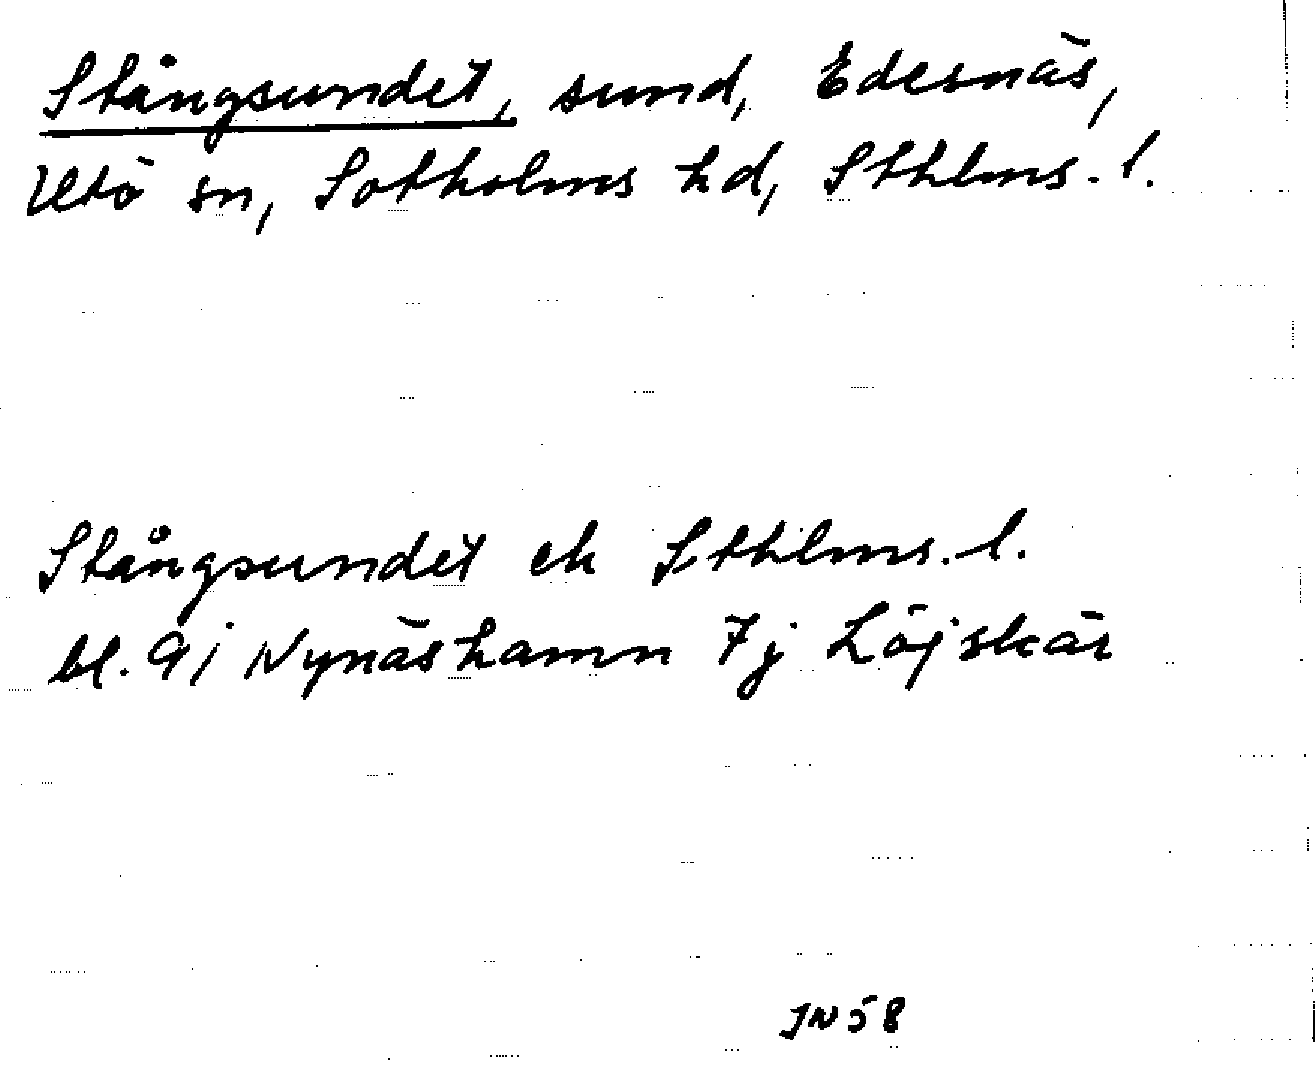 Stångsundet, sund, Edesnäs,
Utö sn, Sotholms hd, Sthlms. l.
Stångsundet ek Sthlms. l.
bl. 9i Nynäshamn 7j Löjskär
JN 58